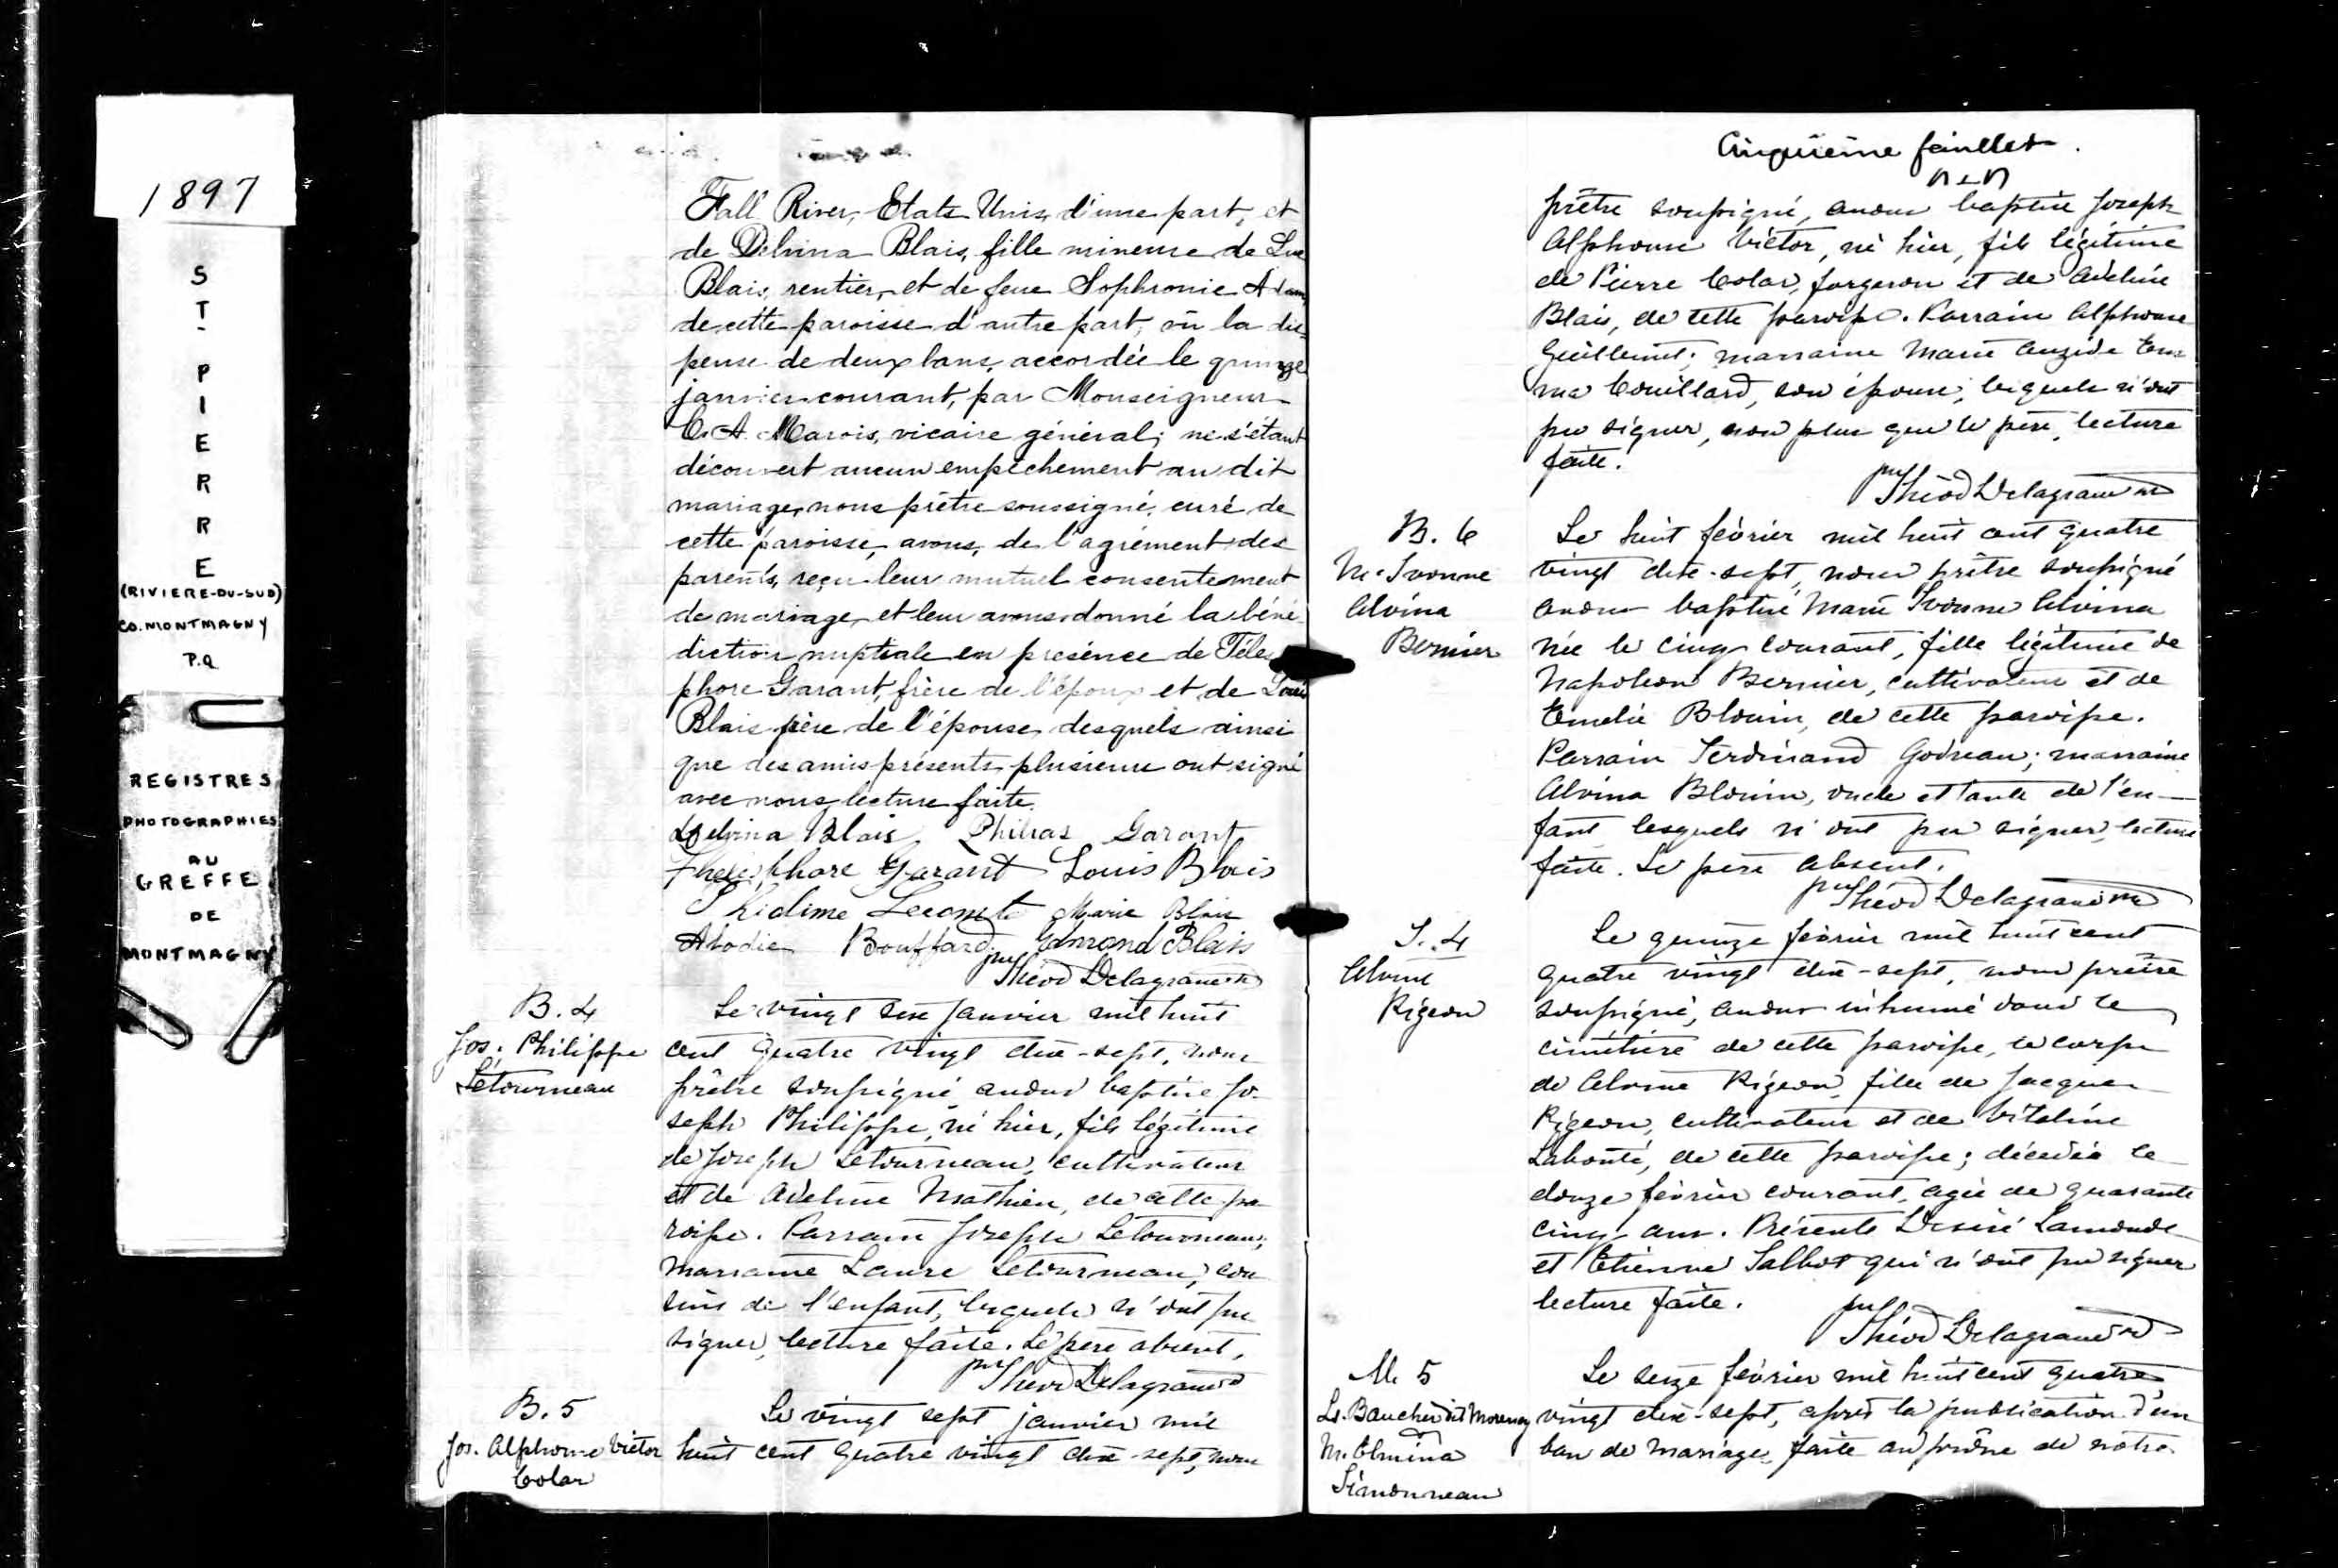 1897
ST
PIERRE
(RIVIERE-DU-SUD)
CO. MONTMAGNY
P.Q
REGISTRES
PHOTOGRAPHIES
AU
GREFFE
DE
MONTMAGNY
Fall River, Etats Unis, d'une part, et
de Delvina Blais, fille mineure de Luc
Blais, rentier, et de feue Sophronie Adam,
de cette paroisse d'autre part; vu la dis-
pense de deux bans, accordée le quinze
janvier courant, par Monseigneur
C. A. Marois, vicaire général; ne s'étant
découvert aucun empêchement au dit
mariage, nous prêtre soussigné, curé de
cette paroisse, avons, de l'agrément des
parents, reçu leur mutuel consentement
de mariage, et leur avons donné la béné-
diction nuptiale en présence de Téles
phore Garant, frère de l'époux et de Louis
Blais père de l'épouse, desquels ainsi
que des amis présents plusieurs ont signé
avec nous, lecture faite.
Delvina Blais Philias Garant
Garant Louis Blais
Lecomte Marie Blais
Bouffard Edmond Blais
ptre Théod Delagrave
B. 4
Jos. Philippe
Létourneau
Le vingt six janvier mil huit
cent quatre vingt dix-sept, nous
prêtre soussigné avons baptisé Jo-
seph Philippe, né hier, fils légitime
de Joseph Letourneau, cultivateur
et de Adeline Mathieu, de cette pa-
roisse. Parrain Joseph Letourneau;
marraine Laure Letourneau, cou-
sins de l'enfant, lesquels n'ont pu
signer, lecture faite. Le père absent.
ptre Théod Delagrave
B. 5
Jos. Alphonse Victor
Colar
Le vingt sept janvier mil
huit cent quatre vingt dix-sept, nous
Cinquième feuillet.
prêtre soussigné, avons baptisé Joseph
Alphonse Victor, né hier, fils légitime
de Pierre Colar, forgeron et de Adeline
Blais, de cette paroisse. Parrain Alphonse
Guillemet; marraine Marie Em-
ma Couillard, son épouse, lesquels n'ont
pu signer, non plus que le père, lecture
faite.
ptre Théod Delagrave
B. 6
M. Ivonne
Alvina
Bernier
Le huit février mil huit cent quatre
vingt dix-sept, nous prêtre soussigné
avons baptisé Marie Ivonne Alvina
née le cinq courant, fille légitime de
Napoléon Bernier, cultivateur et de
Emelie Blouin, de cette paroisse.
Parrain Ferdinand Godreau; marraine
Alvina Blouin, oncle et tante de l'en-
fant lesquels n'ont pu signer, lecture
faite. Le père absent.
ptre Théod Delagrave
S. 4
Alvine
Pigeon
Le quinze février mil huit cent
quatre vingt dix-sept, nous prêtre
soussigné, avons inhumé dans le
cimetière de cette paroisse, le corps
de Alvine Pigeon, fille de Jacques
Pigeon, cultivateur et de Vitaline
Labonté, de cette paroisse; décédée le
douze février courant, agée de quarante
cinq ans. Présents Désiré Lamonde
et Etienne Talbot qui n'ont pu signer
lecture faite.
ptre Théod Delagrave
M. 5
Ls. Baucher dit Morency
&
M. Elmina
Simonneau
Le seize février mil huit cent quatre
vingt dix-sept, après la publication d'un
ban de mariage, faite au prône de notre